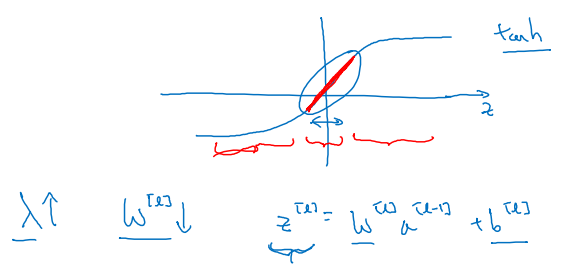 tanh
z
λ↑ W^[l]↓ z^[l] = W^[l] a^[l-1] + b^[l]